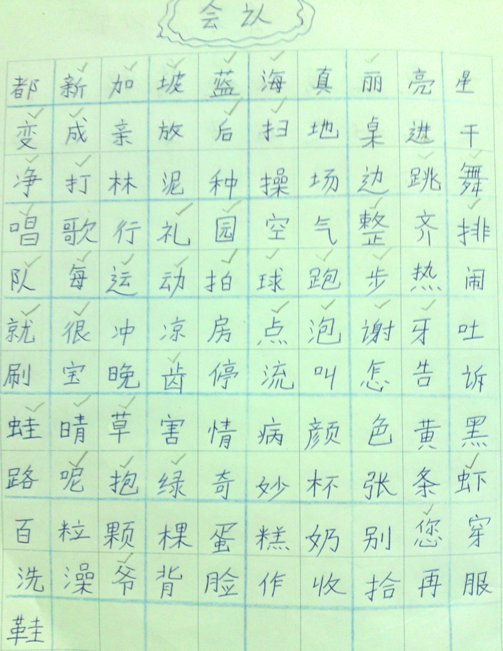 会认
都新加坡蓝海真丽亮星
变成亲放后扫地桌进干
净打林泥种操场边跳舞
唱歌行礼园空气整齐排
队每运动拍球跑步热闹
就很冲凉房点泡谢牙吐
刷宝晚齿停流叫怎告诉
蛙晴草害情病颜色黄黑
路呢抱绿奇妙杯张条虾
百粒颗棵蛋糕奶别您穿
洗澡爷背脸作收拾再服
鞋